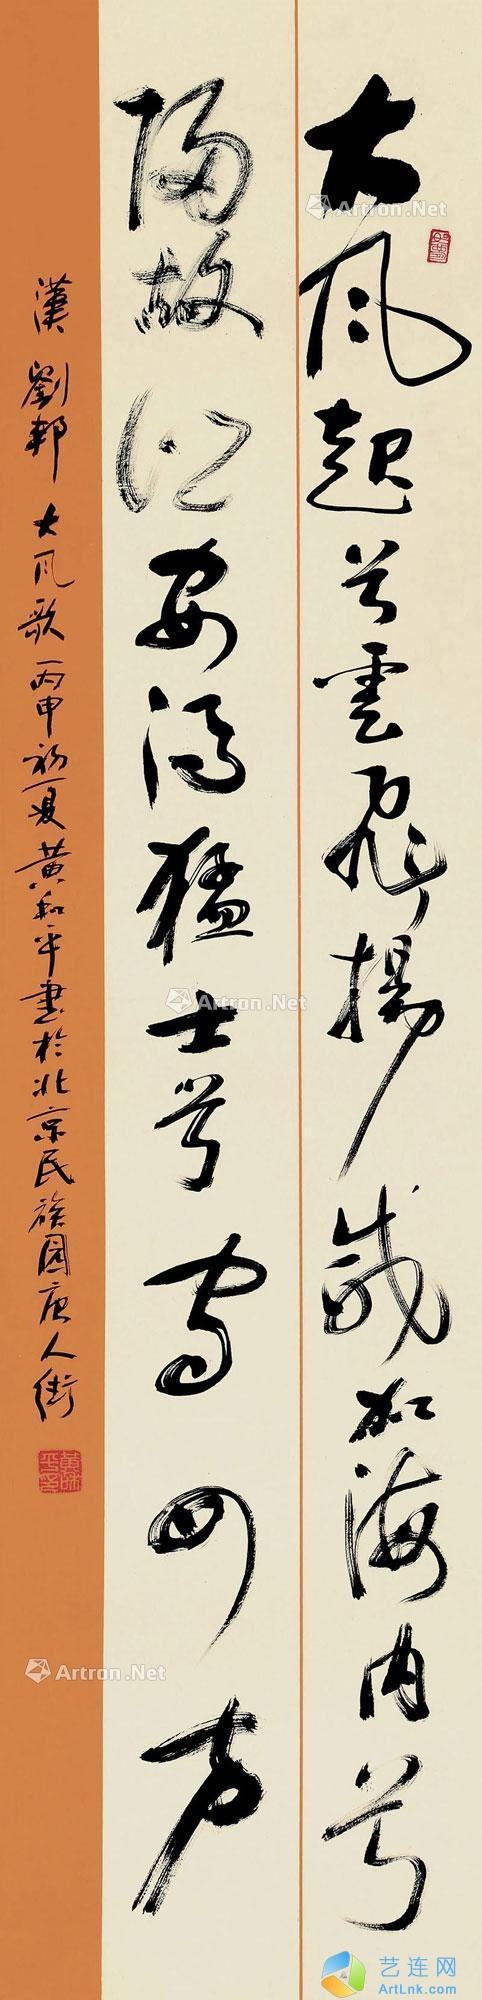 大风起兮雲飛揚威加海内兮
歸故鄉安得猛士兮守四方
漢劉邦大风歌丙申初夏黄和平書於北京民族園唐人街
黄和平印
Artron.Net
Artron.Net
Artron.Net
艺连网
ArtLnk.com